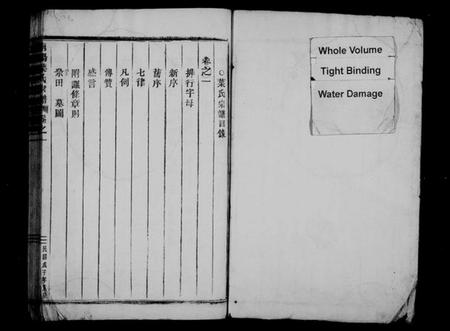 葉氏宗譜目錄
卷之一
排行字母
新序
舊序
七律
凡例
傳贊
感言
附譜條章則
祭田 墓圖
Whole Volume
Tight Binding
Water Damage